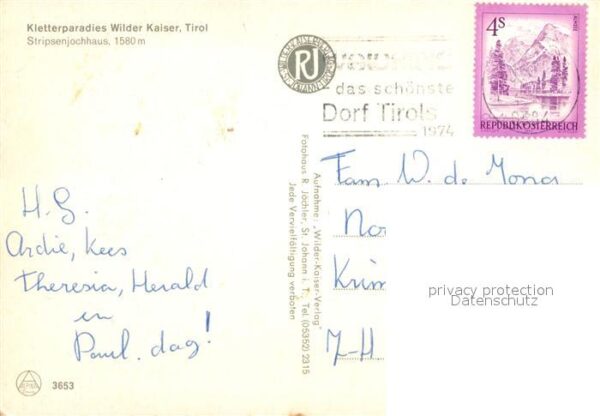 Kletterparadies Wilder Kaiser, Tirol
Stripsenjochhaus, 1580 m
RJ
das schönste
Dorf Tirols
1974
4S
REPUBLIK ÖSTERREICH
Aufnahme: „Wilder-Kaiser-Verlag"
Fotohaus R. Jöchler, St. Johann i. T., Tel. (05352) 2315
Jede Vervielfältigung verboten
H.G.
Ardie, Kees
Theresia, Herald
en
Paul. dag!
Fam W. de Jong
No
Krim
privacy protection
Datenschutz
3653